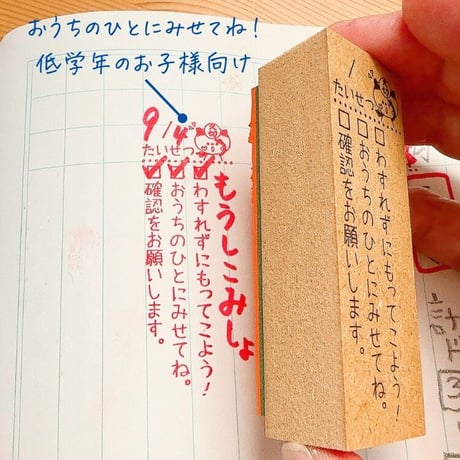 おうちのひとにみせてね！
低学年のお子様向け
9/4
たいせつ
もうしこみしょ
わすれずにもってこよう！
おうちのひとにみせてね。
確認をお願いします。
/
たいせつ
わすれずにもってこよう！
おうちのひとにみせてね。
確認をお願いします。